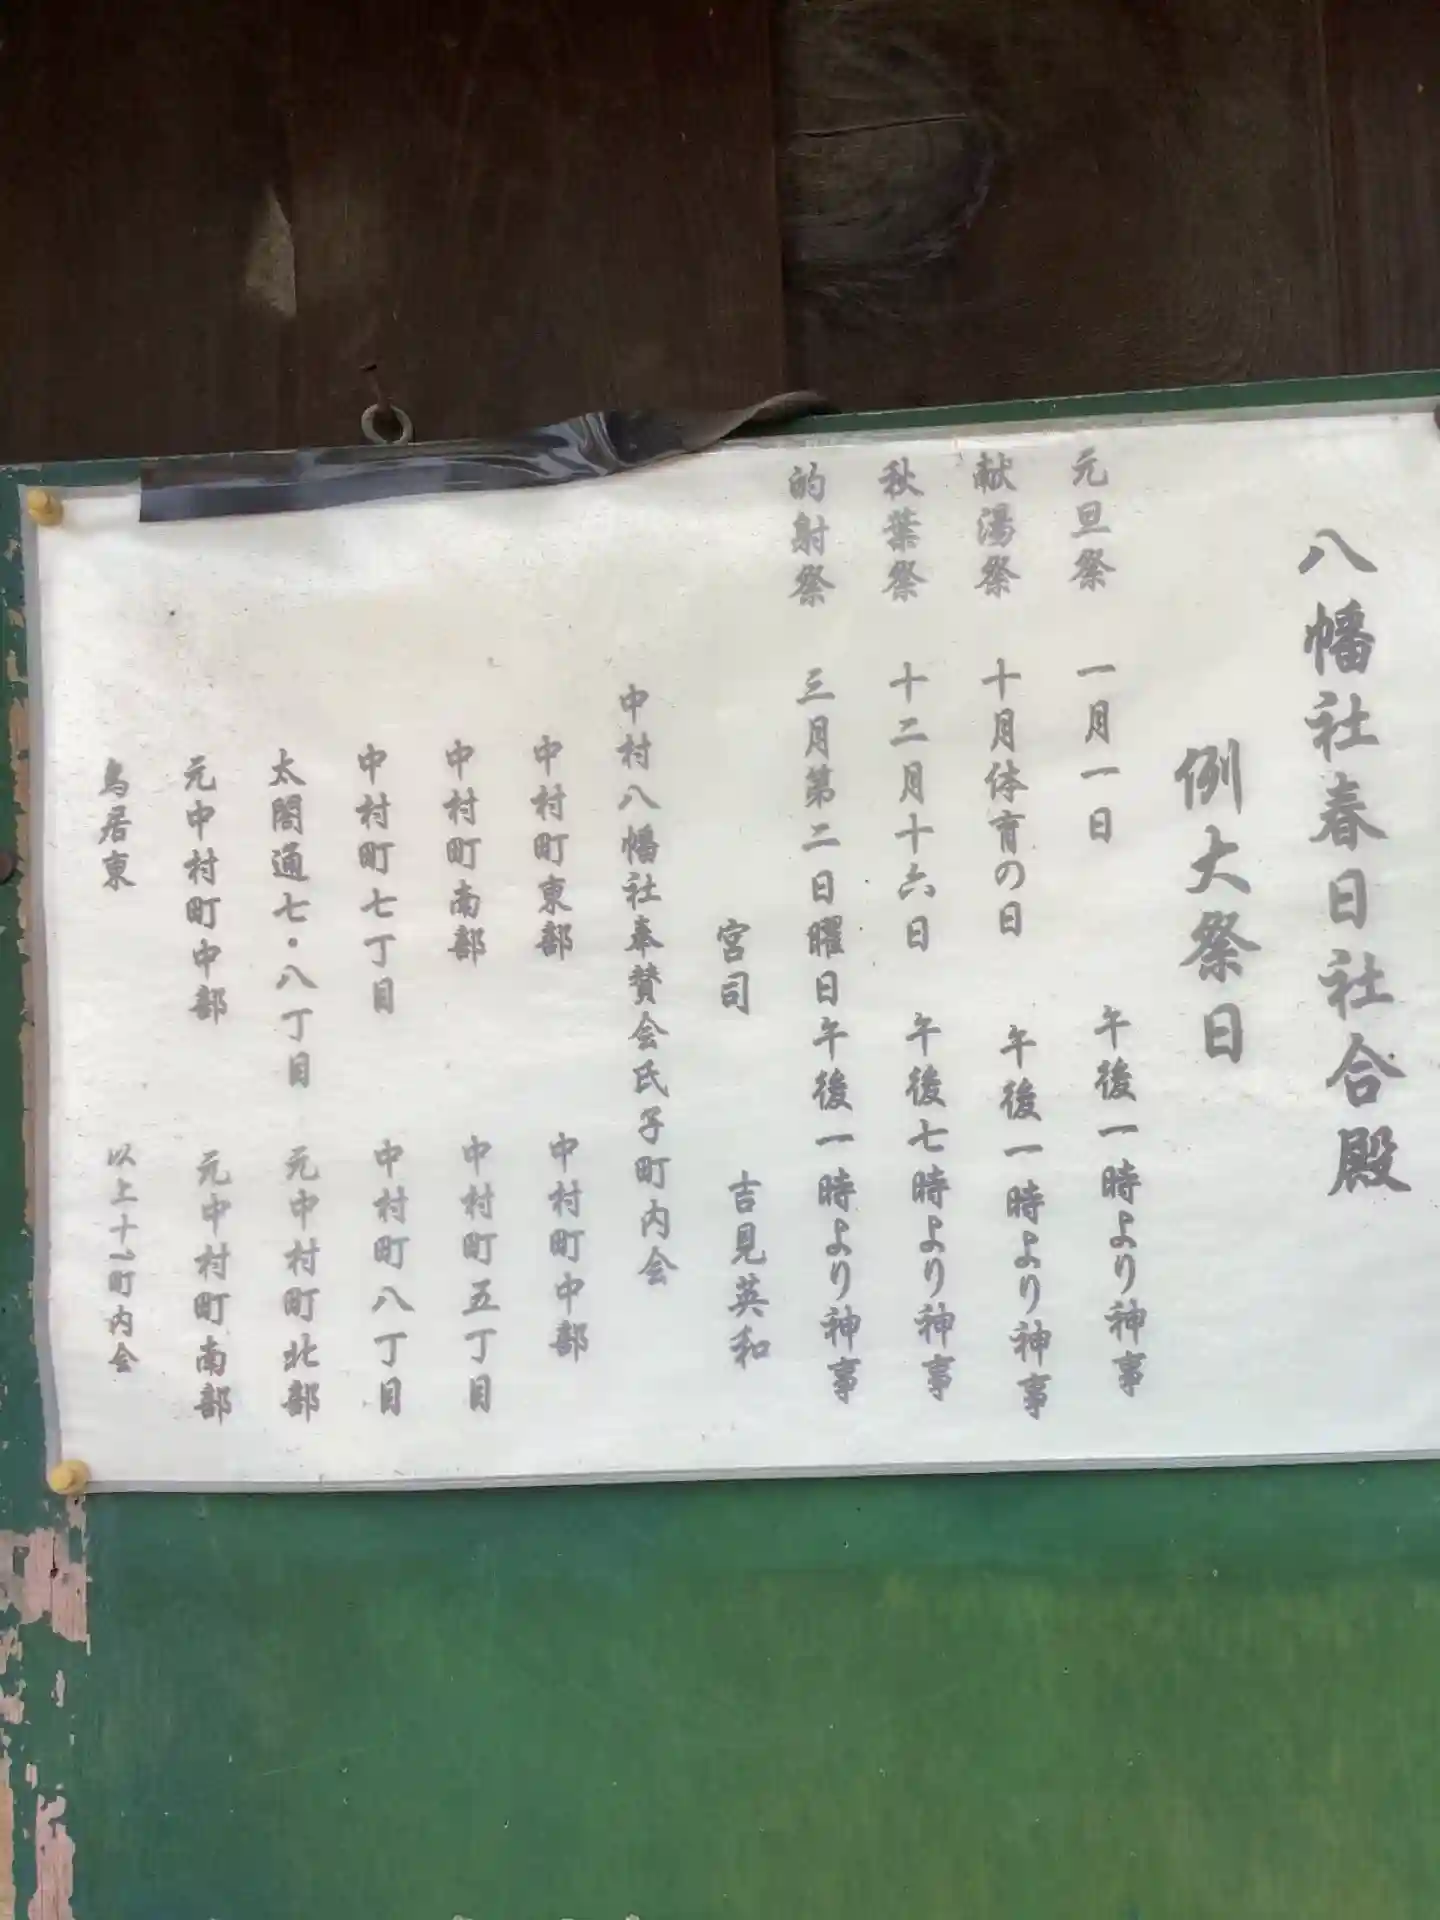 八幡社春日社合殿
例大祭日
元旦祭 一月一日 午後一時より神事
献湯祭 十月体育の日 午後一時より神事
秋葉祭 十二月十六日 午後七時より神事
的射祭 三月第二日曜日午後一時より神事
宮司 吉見英和
中村八幡社奉賛会氏子町内会
中村町東部 中村町中部
中村町南部 中村町五丁目
中村町七丁目 中村町八丁目
太閤通七・八丁目 元中村町北部
元中村町中部 元中村町南部
鳥居東 以上十一町内会